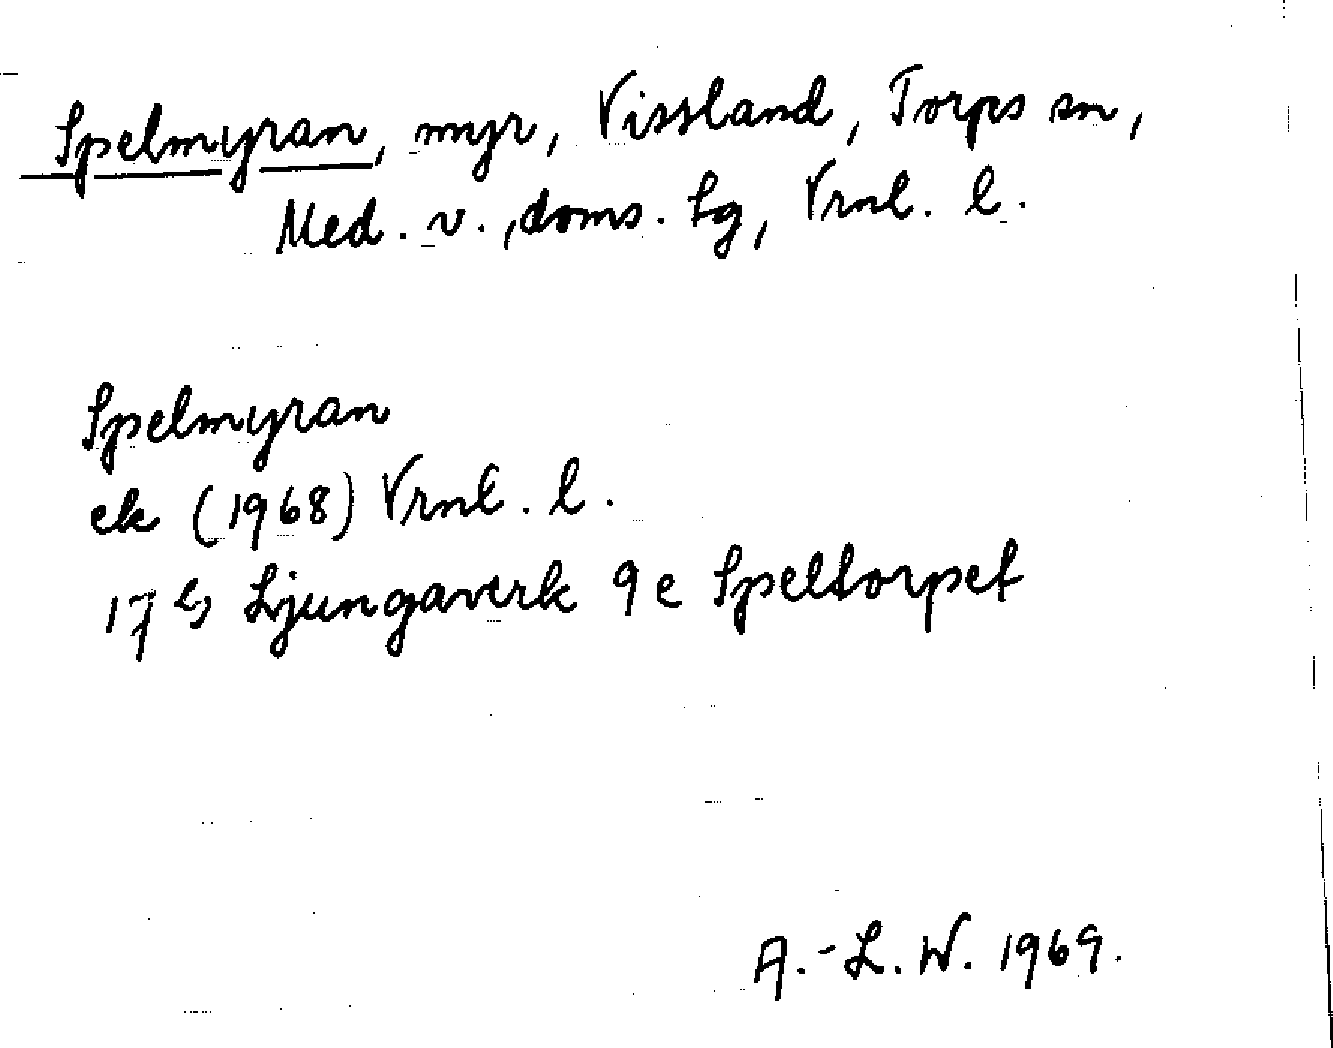 Spelmyran, myr, Vissland, Torps sn,
Med. v., doms. lg, Vrnl. l.
Spelmyran
ek (1968) Vrnl. l.
17G Ljungaverk 9e Speltorpet
A.-L. W. 1969.